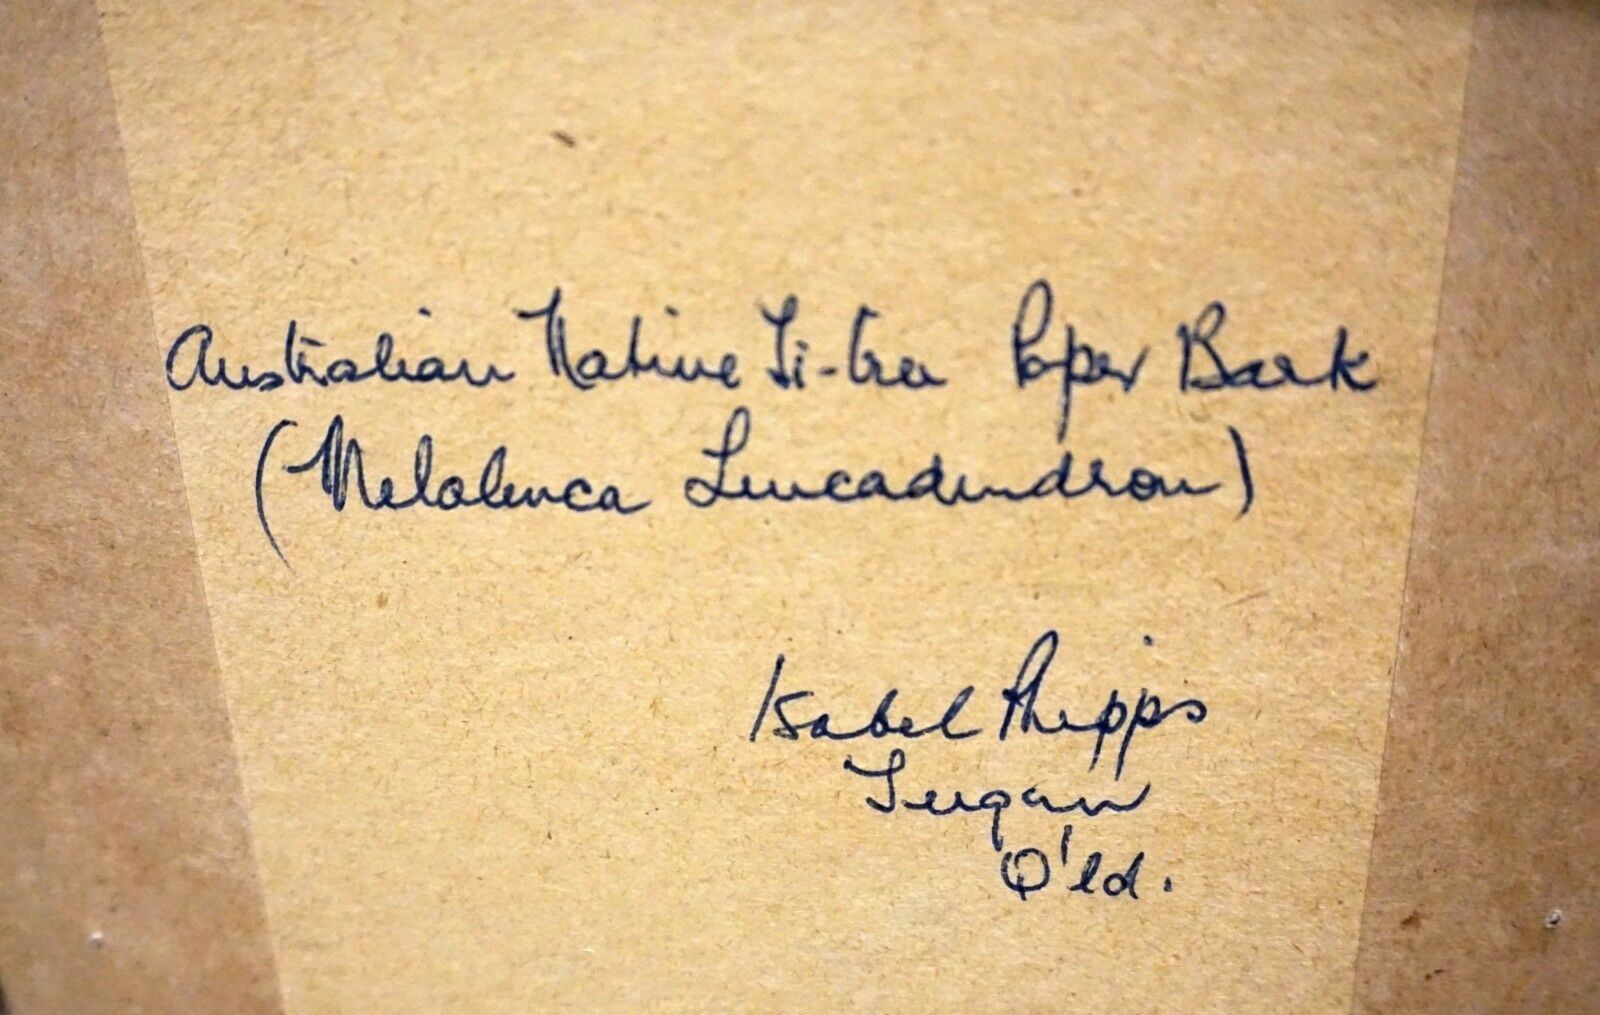 Australian Native Ti-tree Paper Bark
(Melaleuca Leucadendron)
Isabel Phipps
Tugan
Q'ld.